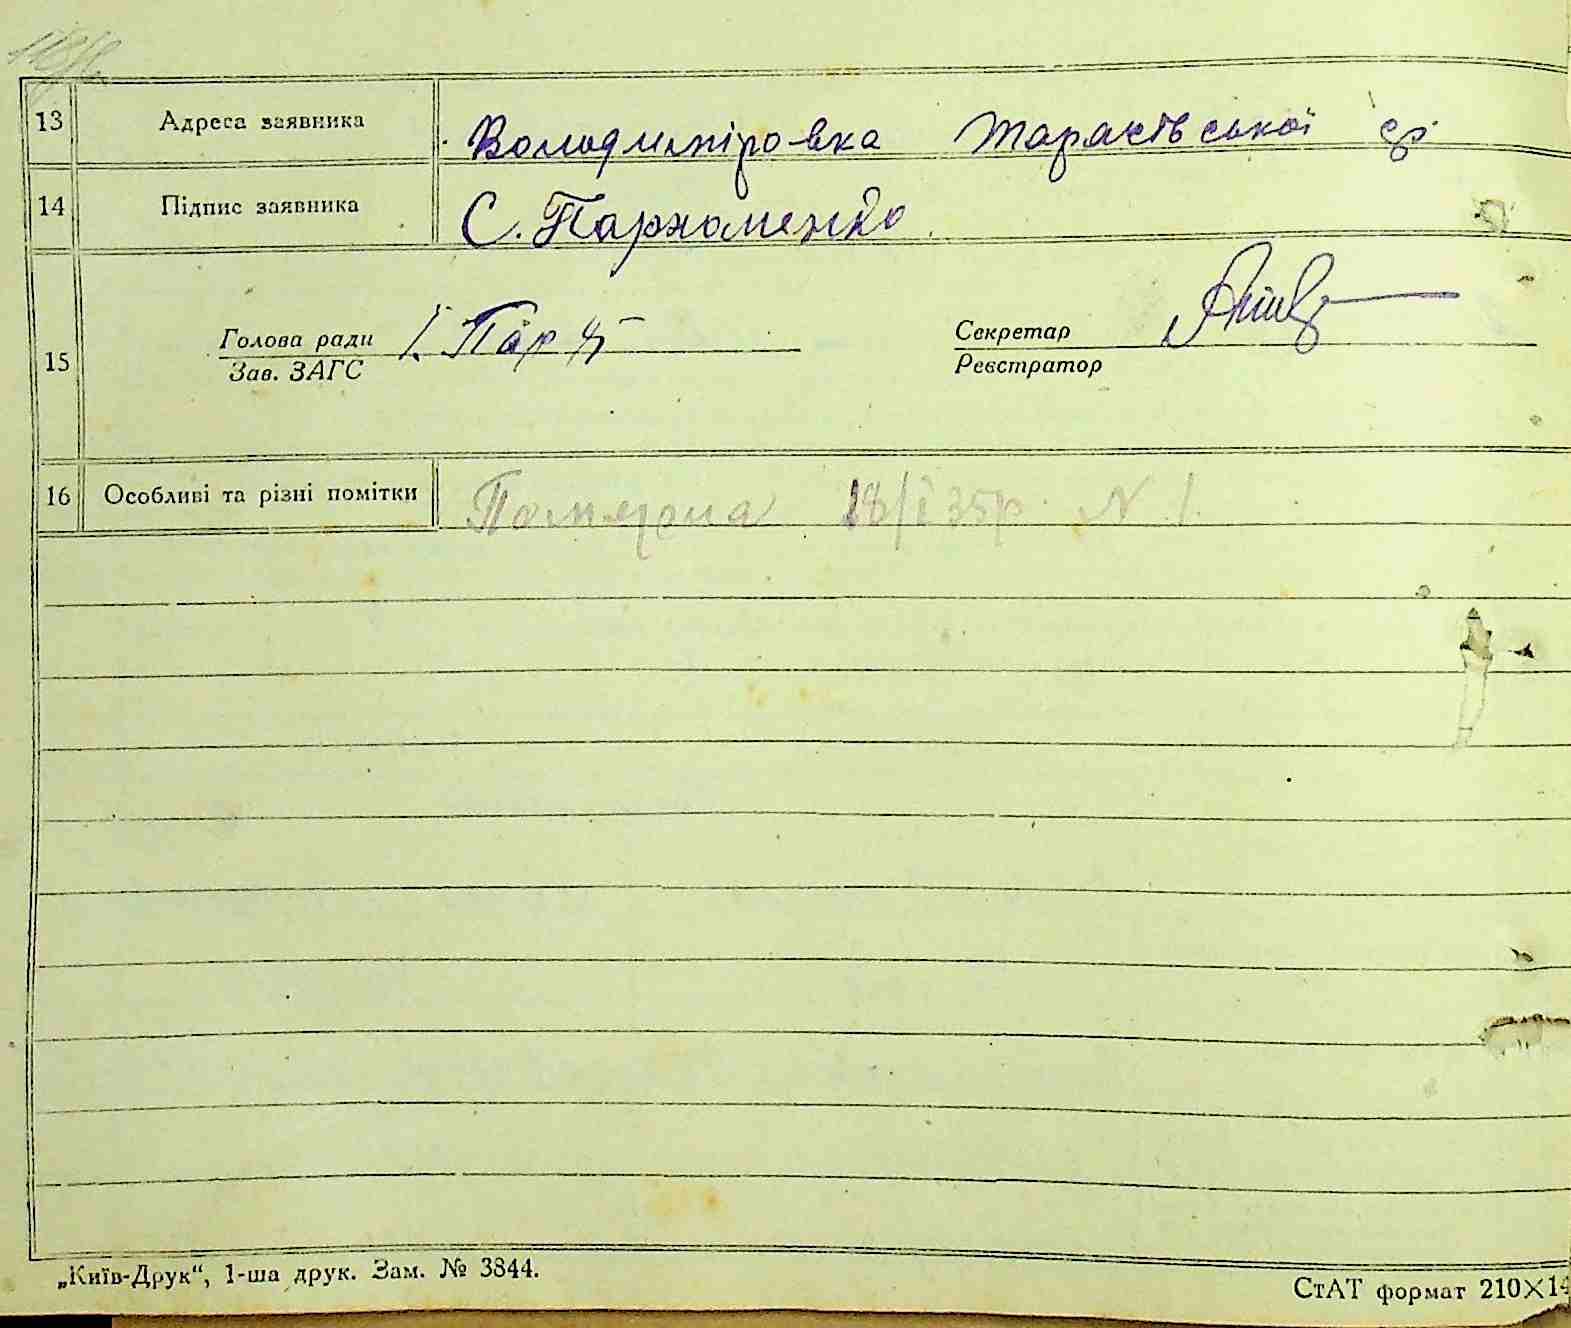 13 Адреса заявника Володиміровка Тарасівської ср.
14 Підпис заявника С. Пархоменко
15 Голова ради Секретар
Зав. ЗАГС Реєстратор
16 Особливі та різні помітки Померла 18/I 35р. N 1.
„Київ-Друк“, 1-ша друк. Зам. № 3844.
СтАТ формат 210×14